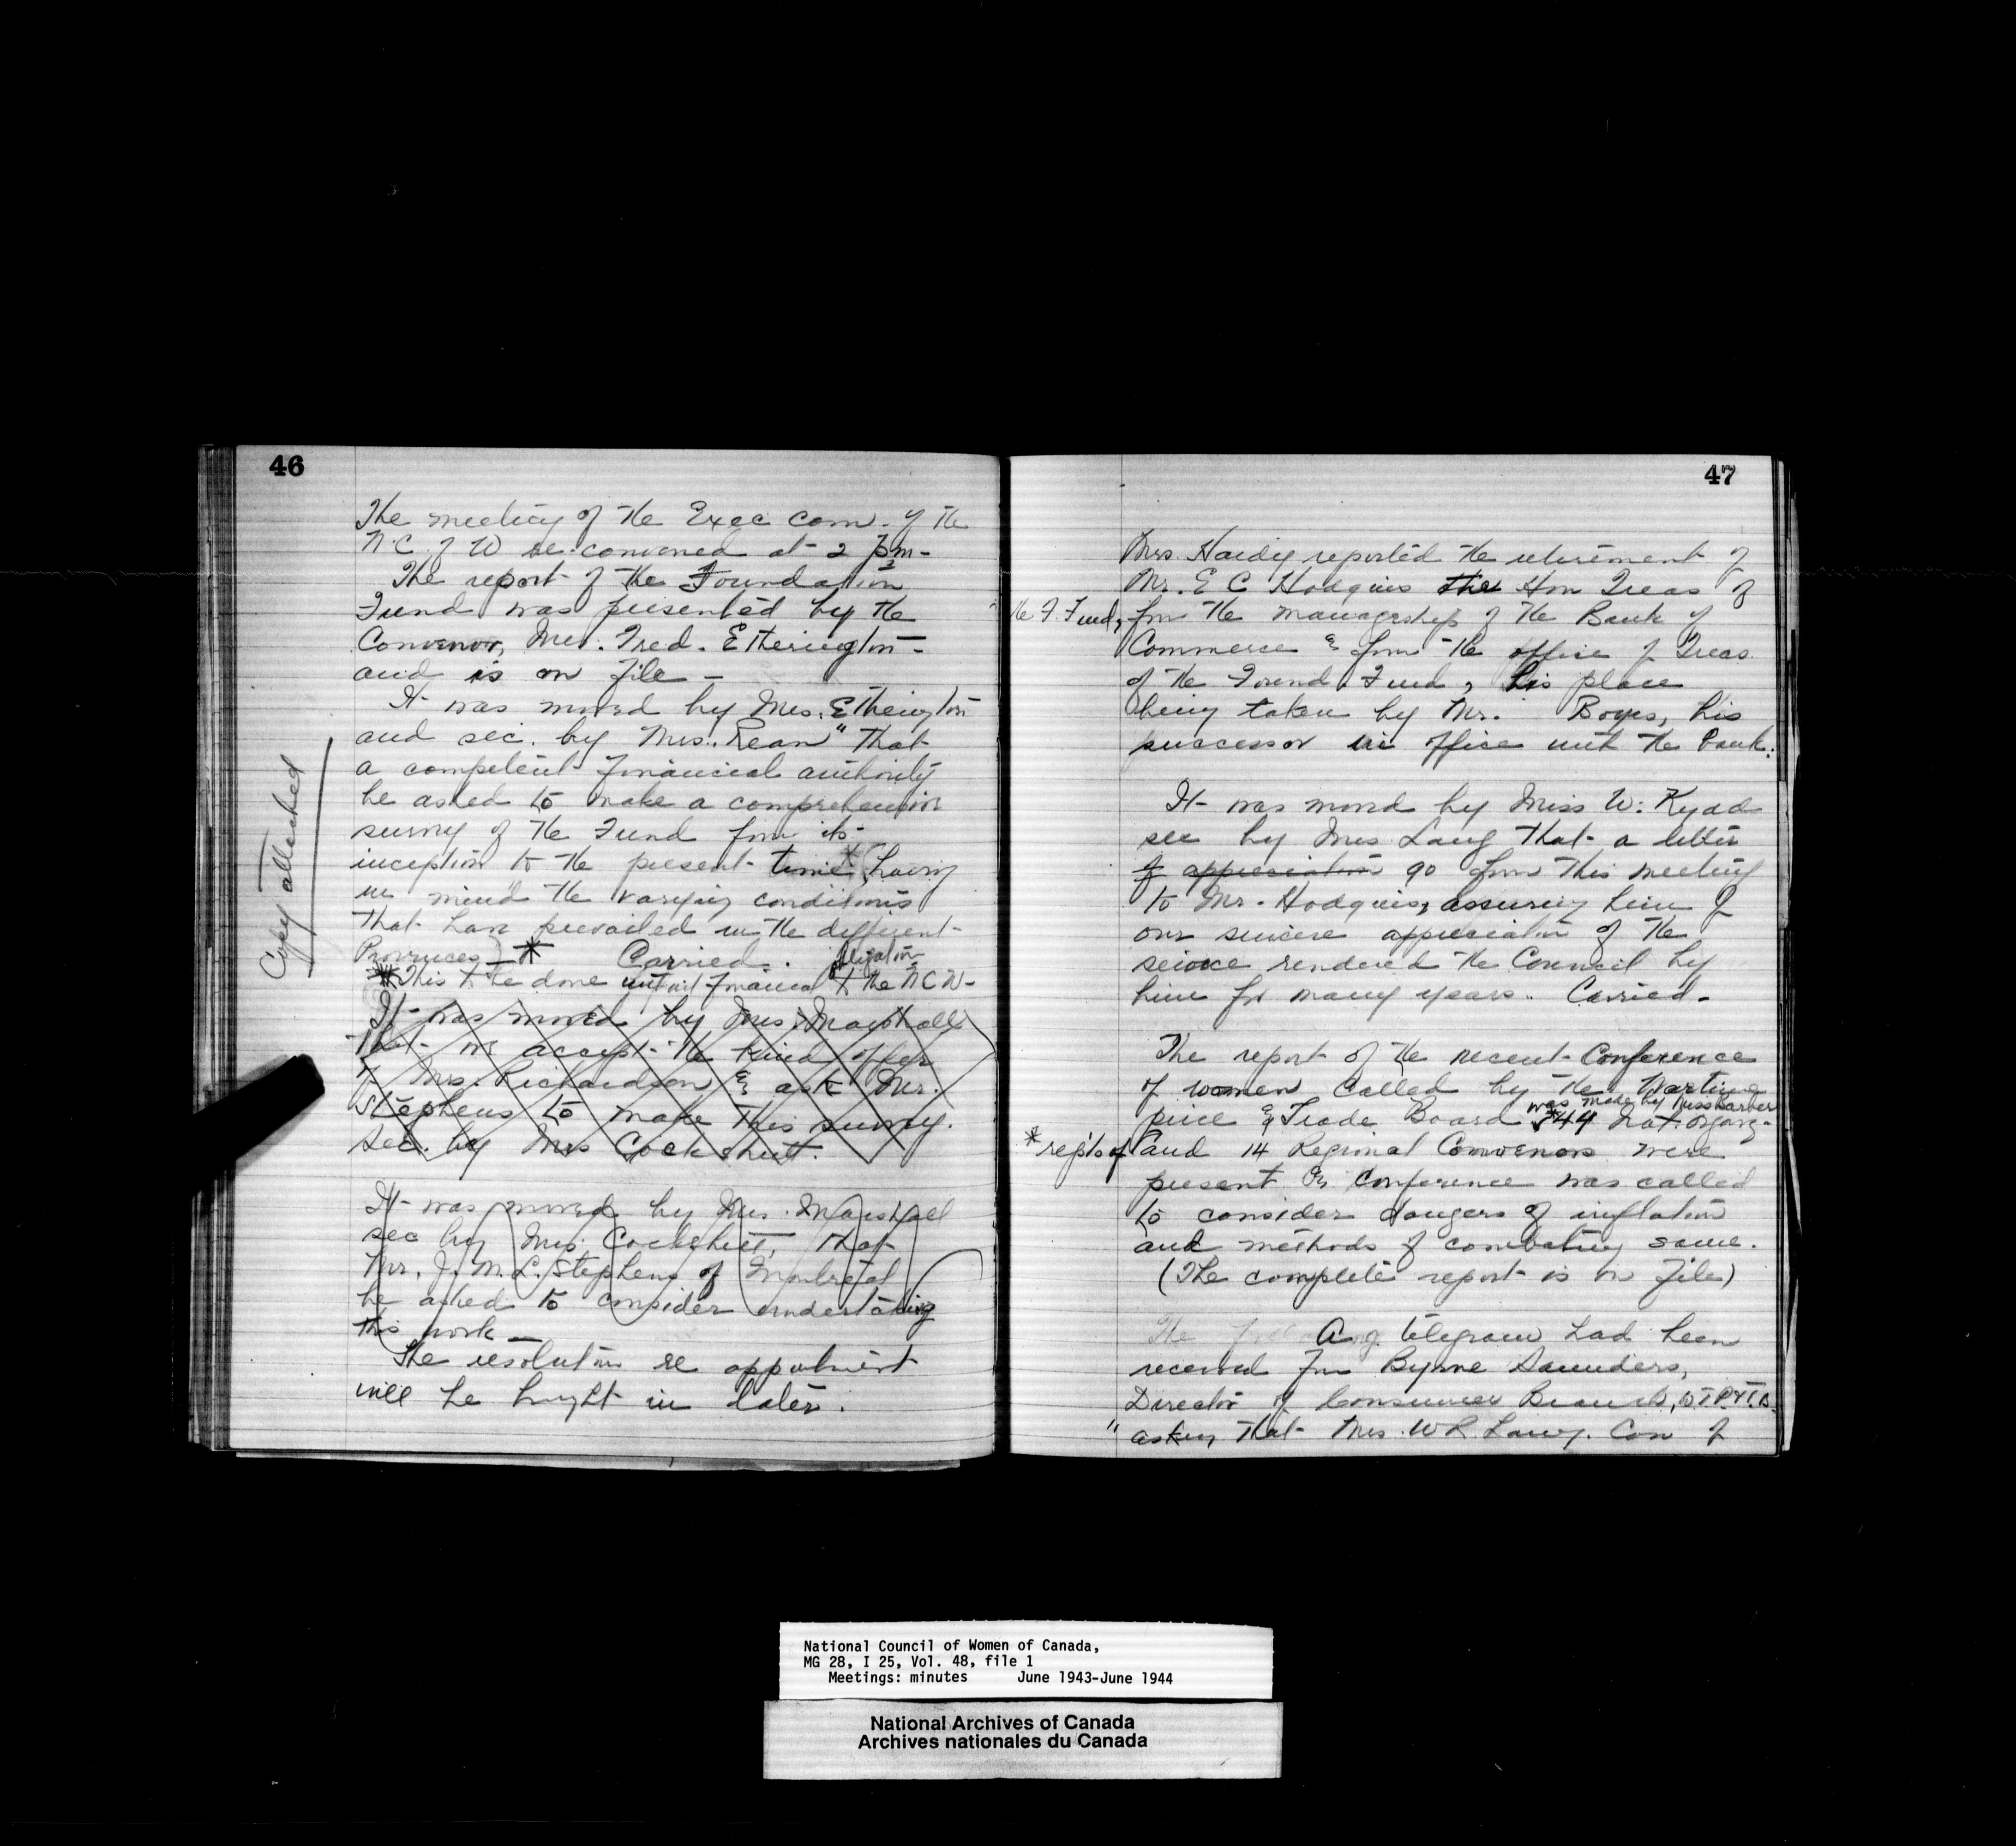 46
The meeting of the Exec Com. of the
N.C. of W re-convened at 2 p.m-
The report of the Foundation
Fund was presented by the
Convenor, Mrs. Fred. Etherington -
and is on file -
It was moved by Mrs. Etherington
and sec. by Mrs. " That
a competent financial authority
be asked to make a comprehensive
survey of the Fund from its
inception to the present time, having
in mind the varying conditions
that have prevailed in the different
Provinces - * Carried.
* This to be done without financial obligation to the N C W-
Copy attached
It was moved by Mrs. Marshall
That we accept the kind offer
of Mrs. Richardson & ask Mr.
Stephens to make this survey.
Sec. by Mrs Cockshutt.
It was moved by Mrs. Marshall
sec by Mrs Cockshutt, That
Mr. J. M. L. Stephens of Montreal
be asked to consider undertaking
this work -
The resolution re appointment
will be brought in later.
47
Mrs. Hardy reported the retirement of
Mr. E C Hodgins the Hon Treas of
the F. Fund, from the managership of the Bank of
Commerce & from the office of Treas
of the Found. Fund, his place
being taken by Mr. Boyes, his
successor in office with the bank.
It was moved by Miss W. Kydd
sec by Mrs Lang That a letter
of appreciation go from this meeting
to Mr. Hodgins, assuring him of
our sincere appreciation of the
service rendered the Council by
him for many years. Carried -
The report of the recent Conference
of women called by the Wartime
price & Trade Board was made by Miss Barber * 44 Nat. organz-
* rep'ts of and 14 Regional Convenors were
present Conference was called
to consider dangers of inflation
and methods of combating same.
(The complete report is on file)
The following A telegram had been
received from Byrne Saunders,
Director of Consumer Branch, W.T.P.&T.B.
" asking That Mrs. W R Lang. Con of
National Council of Women of Canada,
MG 28, I 25, Vol. 48, file 1
Meetings: minutes June 1943-June 1944
National Archives of Canada
Archives nationales du Canada